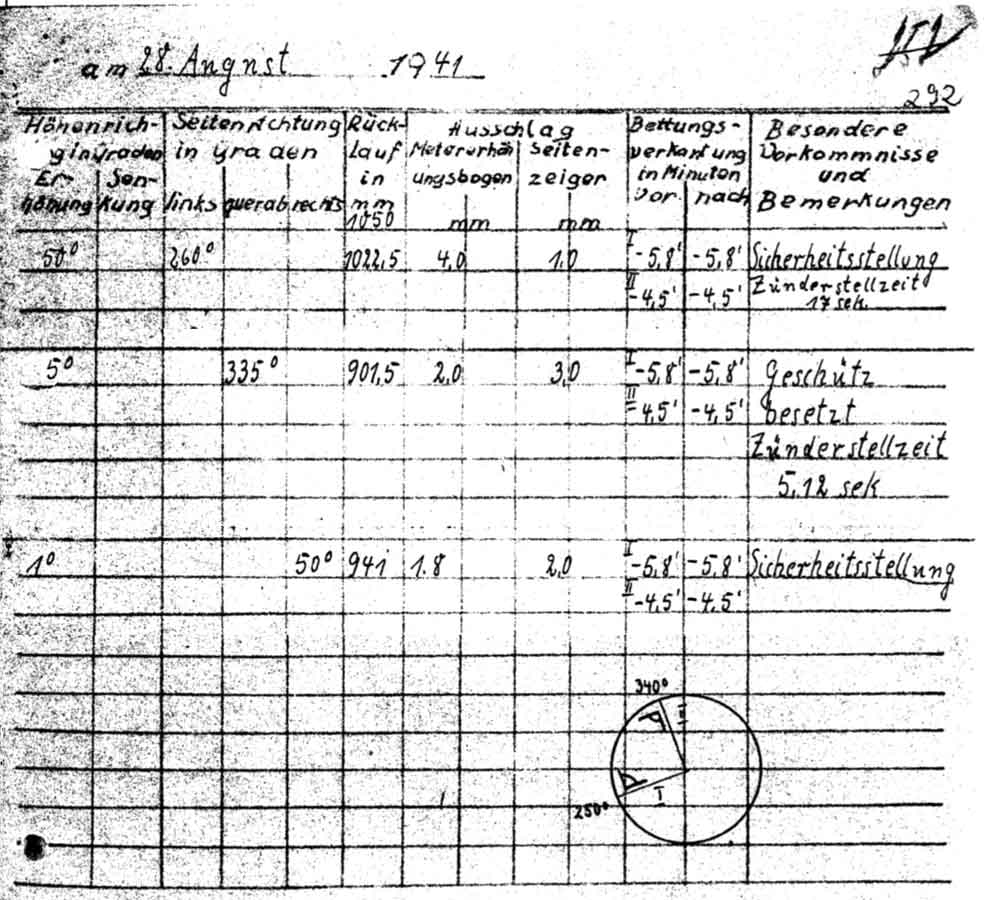 151
am 28. August 1941
292
Höhenrich- Seitenrichtung Rück- Ausschlag Bettungs- Besondere
g in Graden in Graden lauf Metererhöh Seiten- verkantung Vorkommnisse
Er- Sen- in ungsbogen zeiger in Minuten und
höhung kung links querab rechts mm vor nach Bemerkungen
1050 mm mm
50° 260° 1022,5 4,0 1,0 I -5,8' -5,8' Sicherheitsstellung
II -4,5' -4,5' Zünderstellzeit
17 sek.
5° 335° 901,5 2,0 3,0 I -5,8' -5,8' Geschütz
II -4,5' -4,5' besetzt
Zünderstellzeit
5,12 sek
1° 50° 941 1.8 2,0 I -5,8' -5,8' Sicherheitsstellung
II -4,5' -4,5'
340°
II
I
250°